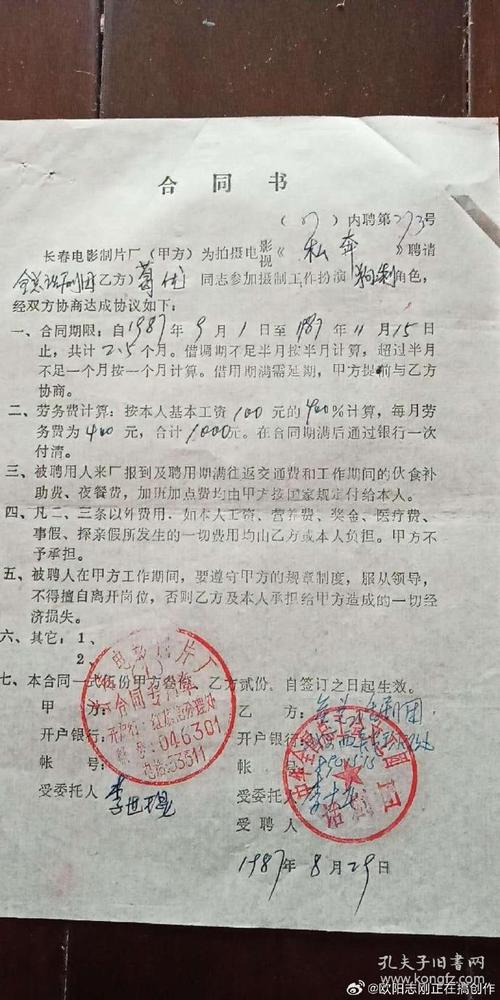 合同书
(87)内聘第273号
长春电影制片厂（甲方）为拍摄电影视《私奔》聘请
全总话剧团乙方）葛优同志参加摄制工作扮演狗剩角色，
经双方协商达成协议如下：
一、合同期限：自1987年9月1日至1987年11月15日
止，共计2.5个月。借调期不足半月按半月计算，超过半月
不足一个月按一个月计算。借用期满需延期，甲方提前与乙方
协商。
二、劳务费计算：按本人基本工资100元的400%计算，每月劳
务费为400元，合计1000元。在合同期满后通过银行一次
付清。
三、被聘用人来厂报到及聘用期满往返交通费和工作期间的伙食补
助费、夜餐费，加班加点费均由甲方按国家规定付给本人。
四、凡二、三条以外费用，如本人工资、营养费、奖金、医疗费、
事假、探亲假所发生的一切费用均由乙方或本人负担。甲方不
予承担。
五、被聘人在甲方工作期间，要遵守甲方的规章制度，服从领导，
不得擅自离开岗位，否则乙方及本人承担给甲方造成的一切经
济损失。
六、其它：1、
2、
七、本合同一式伍份甲方叁份，乙方贰份，自签订之日起生效。
甲方：
开户银行：
帐号：
受委托人
电影制片厂
合同专用章
开户行：
帐号：046301
电话：53311
乙方：
开户银行：
帐号：
受委托人
受聘人
中华全国总工会
话剧团
1987年8月29日
孔夫子旧书网
@欧阳志刚正在搞创作